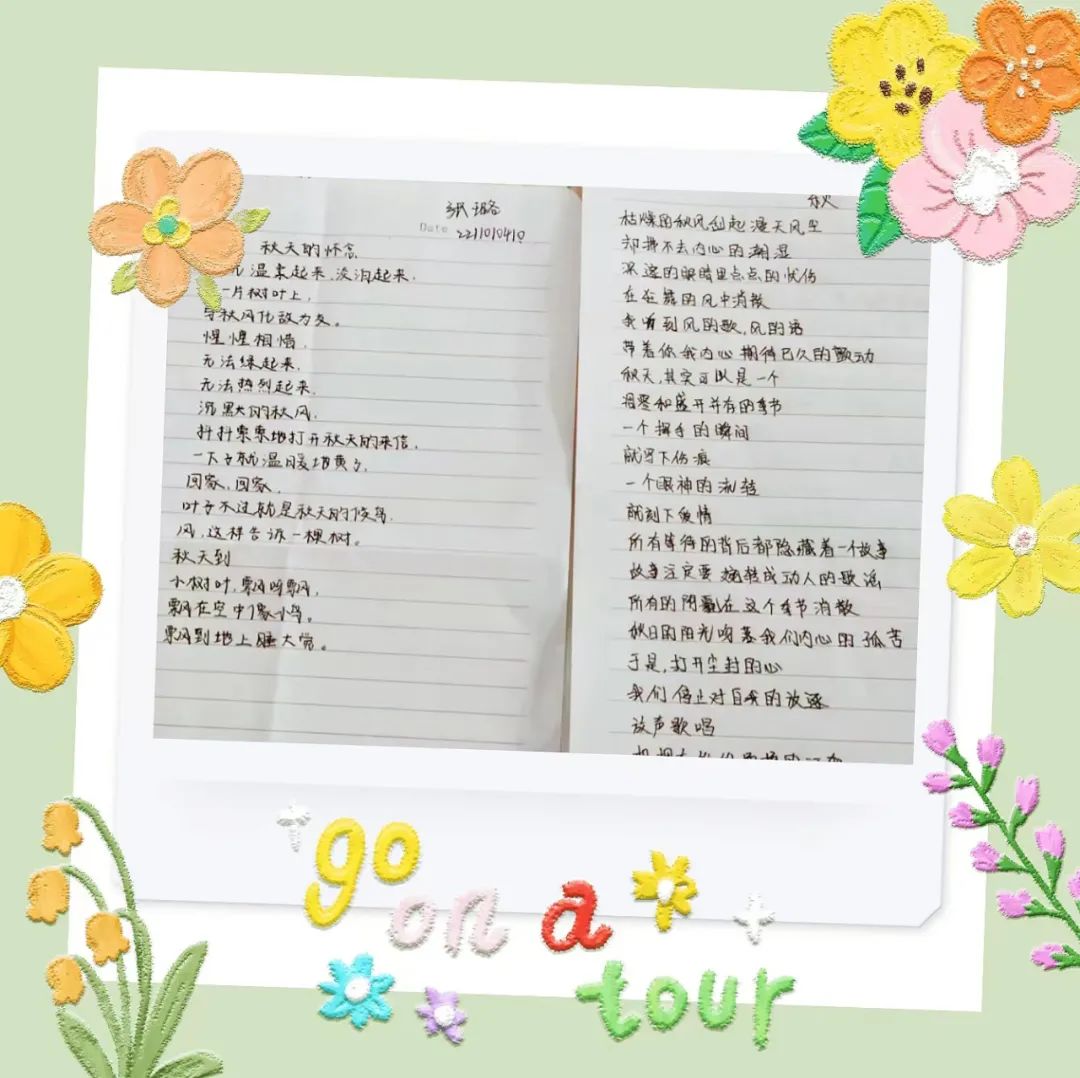 张璐
Date 221101041
秋天的怀念
温柔起来,沉沉起来.
一片树叶上,
与秋风化敌为友。
惺惺相惜,
无法绿起来,
无法热烈起来.
沉默的秋风,
抖抖索索地打开秋天的来信,
一下子就温暖地黄了,
回家,回家,
叶子不过就是秋天的候鸟,
风,这样告诉一棵树。
秋天到
小树叶,飘呀飘,
飘在空中像小鸟。
飘到地上睡大觉。
秋
枯燥的秋风刮起漫天风尘
却撵不去内心的潮湿
深邃的眼睛里点点的忧伤
在狂舞的风中消散
我听到风的歌,风的语
带着你我内心期待已久的颤动
秋天,其实可以是一个
凋零和盛开并存的季节
一个挥手的瞬间
就写下伤痕
一个眼神的流转
就刻下爱情
所有等待的背后都隐藏着一个故事
故事注定要婉转成动人的歌谣
所有的阴霾在这个季节消散
秋日的阳光吻着我们内心的孤苦
于是,打开尘封的心
我们停止对自我的放逐
放声歌唱
go
on a
tour